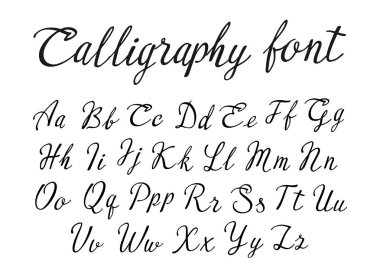 Calligraphy font
Aa Bb Cc Dd Ee Ff Gg
Hh Ii Jj Kk Ll Mm Nn
Oo Qq Ppp Rr Ss Tt Uu
Vv Ww Xx Yy Zz